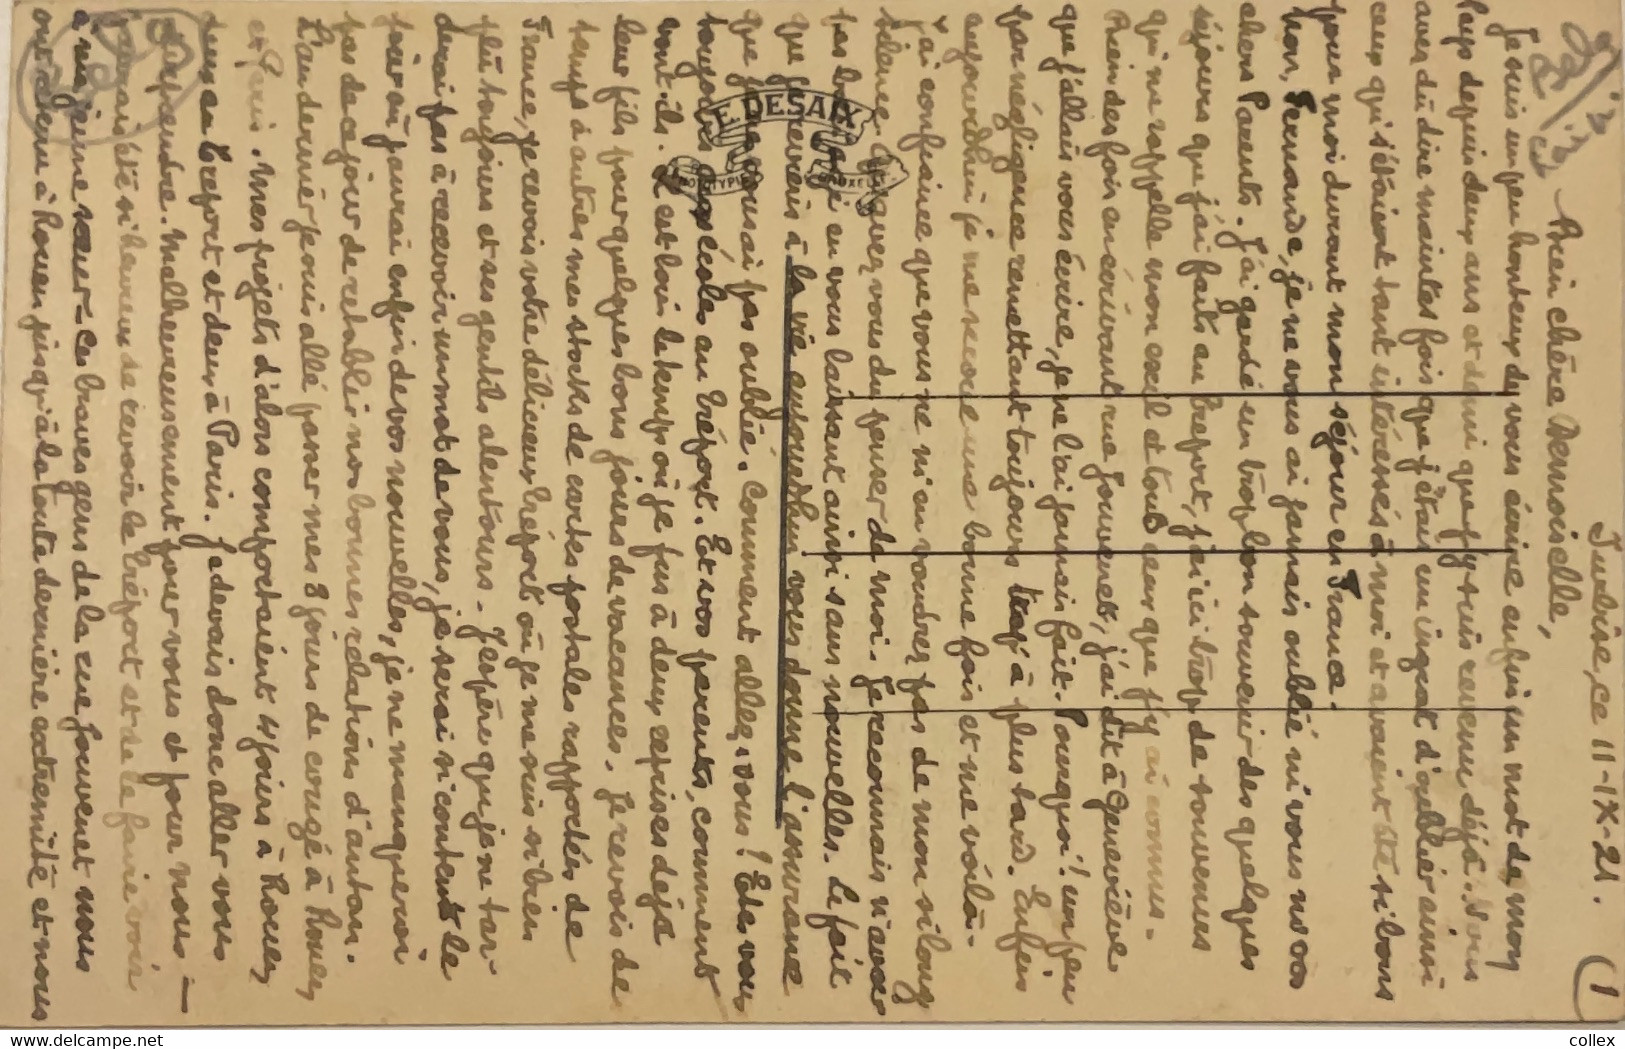 Jumbise, ce 11-IX-21. (1
Bien chère Mademoiselle,
Je suis un peu honteux de vous écrire enfin un mot de mon
Pays depuis deux ans et demi que j'y suis revenu déjà. Vous
avez dû dire maintes fois que j'étais un ingrat d'oublier ainsi
ceux qui s'étaient tant intéressés à moi et avaient été si bons
pour moi durant mon séjour en France.
Non, Fernande, je ne vous ai jamais oublié ni vous ni vos
chers Parents. J'ai gardé un trop bon souvenir des quelques
séjours que j'ai faits au Tréport, j'ai ici trop de souvenirs
qui me rappelle mon exil et tous ceux que j'y ai connus.
Bien des fois en écrivant rue Jouvenet, j'ai dit à Geneviève
que j'allais vous écrire, je ne l'ai jamais fait. Pourquoi! un peu
par négligence remettant toujours à plus tard. Enfin
aujourd'hui je me secoue une bonne fois et me voilà.
J'ai confiance que vous ne m'en voudrez pas de mon si long
silence. Qu'avez vous du penser de moi. Je reconnais n'avoir
pas bien agi en vous laissant ainsi sans nouvelles. Le fait
que je reviens à la vie aujourd'hui vous donne l'assurance
que je ne vous ai pas oublié. Comment allez-vous? Etes vous
toujours aux écoles au Tréport. Et vos parents, comment
vont-ils. Il est loin le temps où je fus à deux reprises déjà
leur fils pour quelques bons jours de vacances. Je revois de
temps à autres mes stocks de cartes postales rapportées de
France, je revois votre délicieux Tréport où je me suis si bien
plu toujours et ses gentils alentours. J'espère que je ne tar-
derai pas à recevoir un mot de vous, je serai si content le
jour où j'aurai enfin de vos nouvelles, je ne manquerai
pas de ce jour de rétablir nos bonnes relations d'antan.
L'an dernier je suis allé passer mes 8 jours de congé à Rouen
et Paris. Mes projets d'alors comportaient 4 jours à Rouen
deux au Tréport et deux à Paris. Je devais donc aller vous
surprendre. Malheureusement pour vous et pour nous —
j'aurais été si heureux de revoir le Tréport et de le faire voir
à ma jeune sœur - ces braves gens de la rue Jouvenet nous
ont retenu à Rouen jusqu'à la toute dernière extrémité et nous
E. DESAIX
PHOTOTYPIE
BRUXELLES
collex